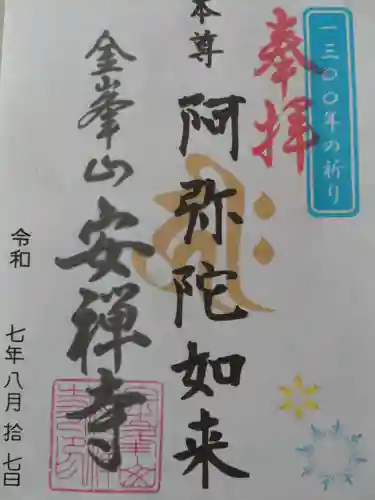 一三〇〇年の祈り
奉拝
本尊
阿弥陀如来
金峯山
安禅寺
令和
七年八月拾七日